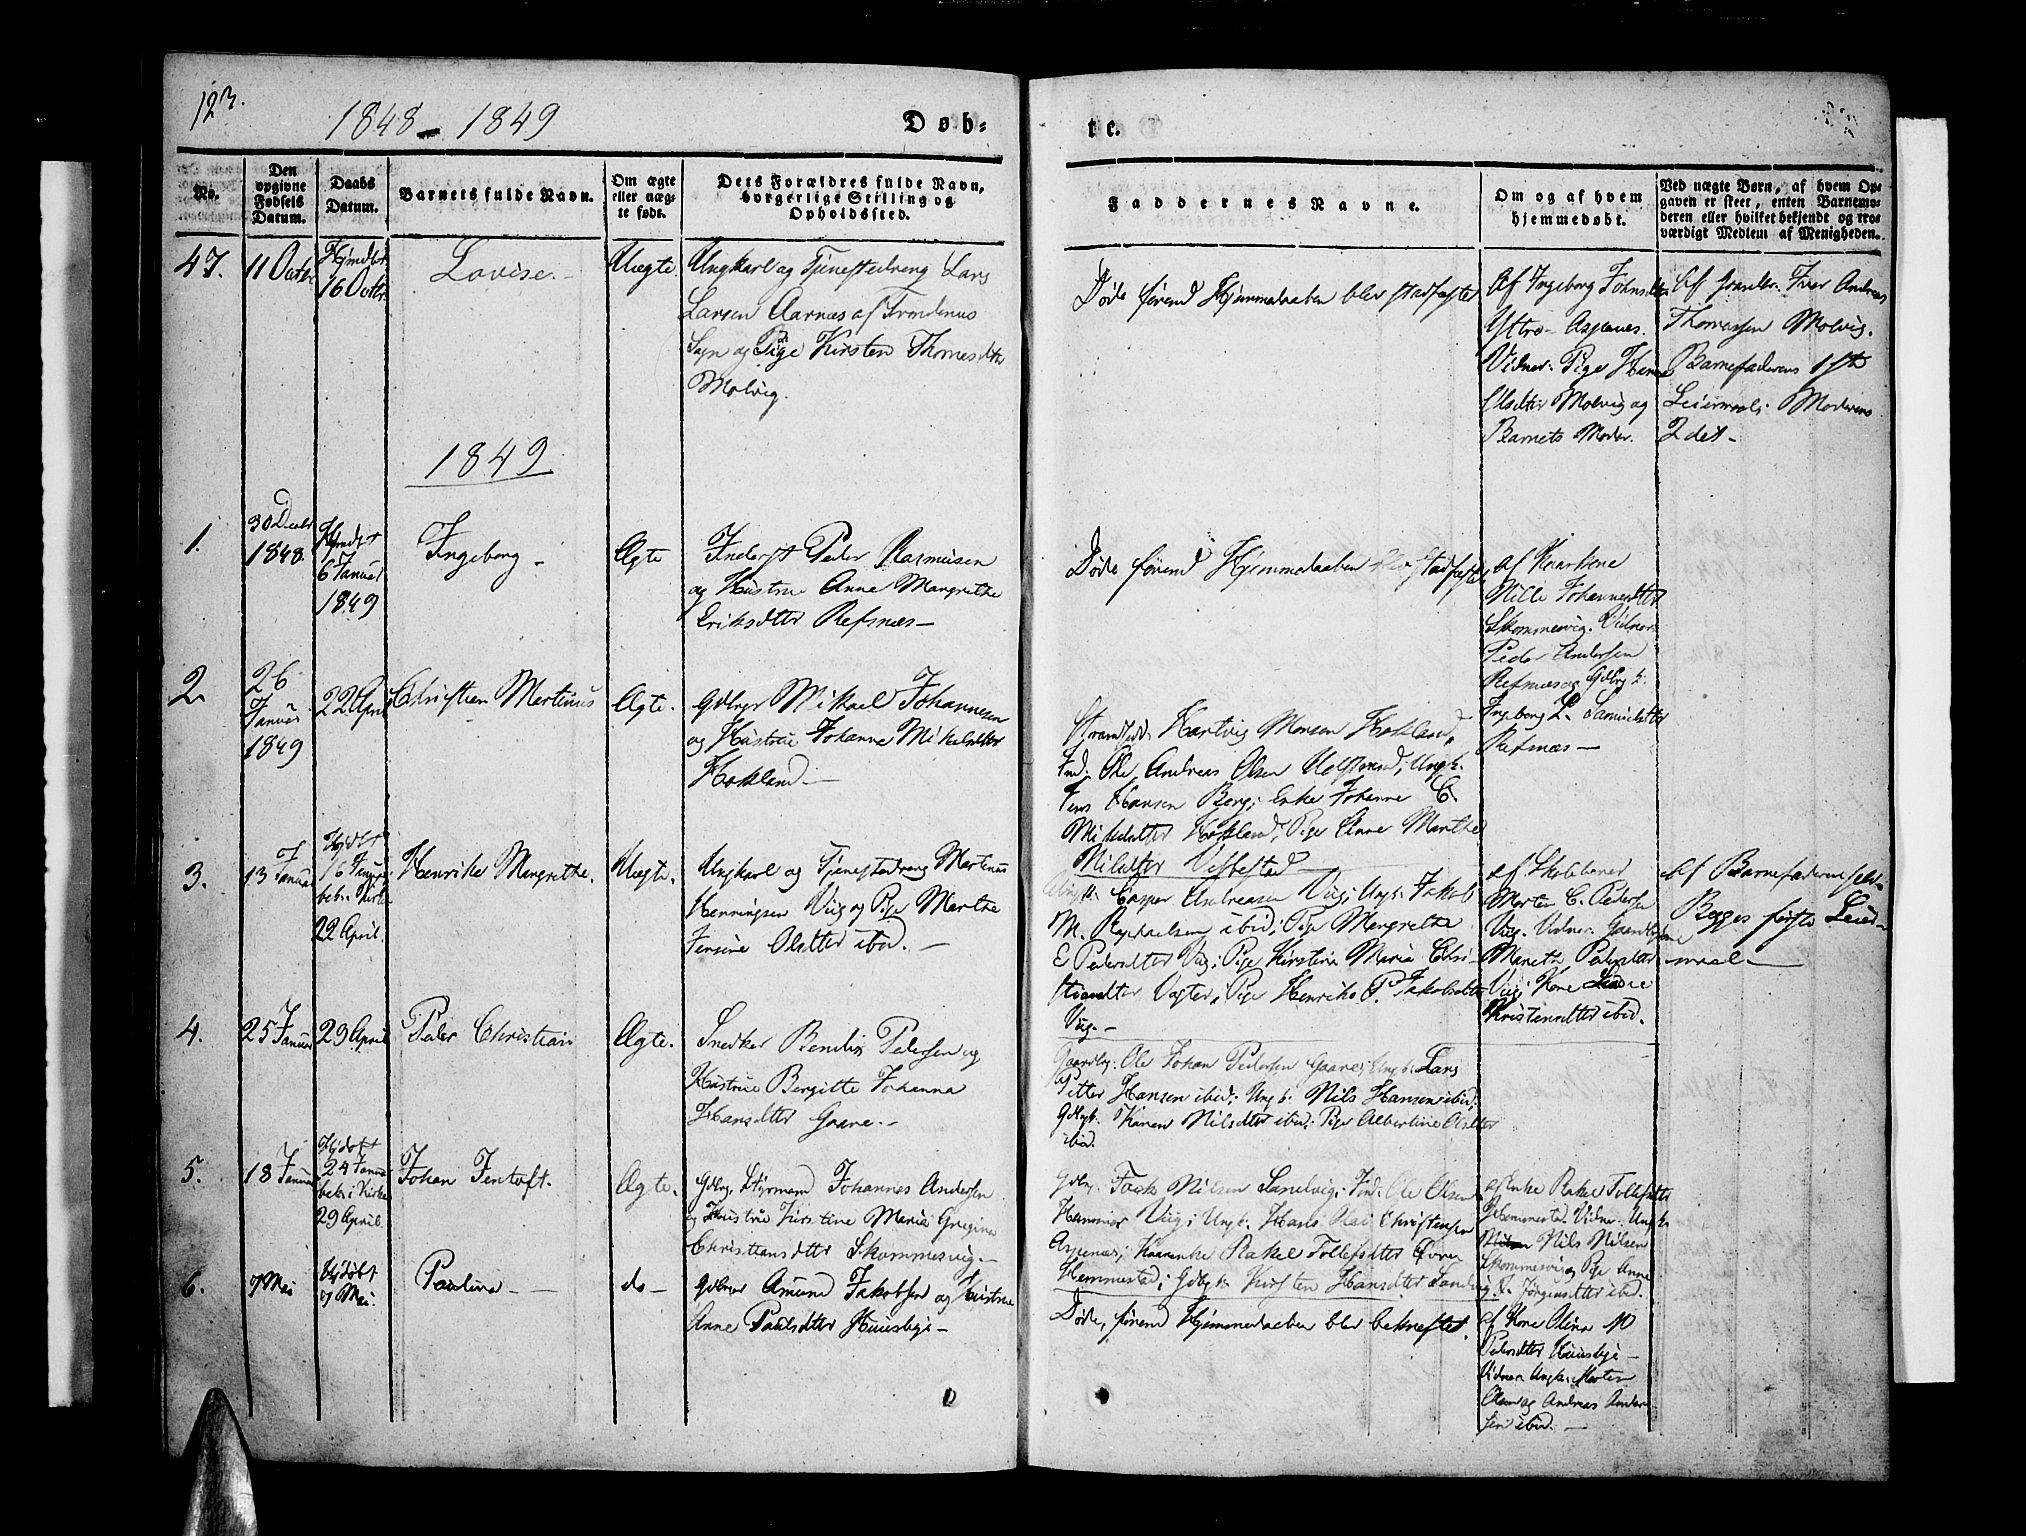 123.
1848 - 1849
Døb-
te.
No.
Den
opgivne
Fødsels
Datum.
Daabs
Datum.
Barnets fulde Navn.
Om ægte
eller uæg-
te født.
Dets Forældres fulde Navn,
borgerlige Stilling og
Opholdssted.
Faddernes Navne.
Om og af hvem
hjemmedøbt.
Ved uægte Børn, af hvem Op-
gaven er skeet, enten Barnemo-
deren eller hvilket bekjendt og tro-
værdigt Medlem af Menigheden.
47.
11 Octbr
16 Octbr
Lovise.
Uægte.
Ungkarl og Tjenestedreng Lars
Larsen Aarnæs af Trondenæs
Sogn og Pige Kirsten Thomesdtr
Molvig.
Døde førend Hjemmedaaben blev stadfæstet
Af Ingeborg Johnsdtr
Ytre- Aspenes.
Vidner: Pige Hanna
Olsdtter Molvig og
Barnets Moder.
Af Gaardbr. Iver Andreas
Thomassen Molvig.
Barnefaderens 1ste
Leiermaal; Moderens
2det -
1849
1.
30 Decbr
1848.
6 Januar
1849
Ingeborg -
Ægte
Inderst Peder Rasmusen
og Hustrue Anne Margrethe
Eriksdtter Refsnæs -
Døde førend Hjemmedaaben blev stadfæstet
af Kaarkone
Nille Johannesdtter
Skommesvig. Vidner
Peder Andersen
Refsnæs og Gdbrg k.
Ingeborg L. Samuelsdtter
Refnæs -
2
26
Januar
1849
22 April
Christian Martinus
Ægte.
Gdbrgr Mikael Johannesen
og Hustrue Johanne Mikelsdtter
Hokland. -
Hartvig Monsen Hokland,
Ind: Ole Andreas Olsen Ungk.
Jens Hansen Berg; Enke Johanne C.
Mikelsdtter Hokland; Pige Anne Marthe
Nilsdtter Vebbestad -
3.
13 Januar
16 Januar
bekr. i Kirke
22 April.
Henrike Margrethe.
Uægte.
Ungkarl og Tjenestedreng Martinus
Henningsen Viig og Pige Marthe
Jensine Olsdtter ibid. -
Ungk: Casper Andreasen Viig; Ungk: Jakob
M. ibid; Pige Margrethe
E Pedersdtter Viig; Pige Kirstine Maria Chri-
stiansdtter Pige Henrike P. Jakobsdtter
Viig. -
af Skoleholder
Morten C. Pedersen
Viig. Vidner:
Mareth Pedersdtter
Viig; Kone
Kristensdtter ibid.
Af Barnefaderen selv.
Begges første Leier-
maal -
4.
25 Januar
29 April
Peder Christian
Ægte.
Snedker Bendix Pedersen og
Hustrue Bergitte Johanna
Hansdtter Gaare. -
Gaardbg: Ole Johan Pedersen Gaare; Ungk: Lars
Petter Hansen ibid; Ungk: Nils Hansen ibid;
Karen Nilsdtter ibid; Pige Albertine Olsdtter
ibid.
5.
18 Januar
Hjdøbt
24 Januar
bekr: i Kirke
29 April.
Johan Jentoft.
Ægte.
Gdbrg Styrmand Johannes Andersen
og Hustrue Kirstine Maria Gregine
Christiansdtter Skommesvig. -
Gdbg: Nilsen Sandvig; Ind: Ole Olsen
Viig; Ungk: Hans Kai Christensen
Aspenæs; Rakel Tollefsdtter Øvre
Hemmestad; Gdbgk: Kirsten Hansdtter Sandvig
af Enke Rakel Tollefsdtter
Hemmestad. Vidner: Ungk
Nils Nilsen
Skommesvig og Pige Anne
Jørgensdtter ibid.
6.
7 Mai
Hjdøbt
7 Mai.
Paulina -
do -
Gdbrgr Amund Jakobsen og Hustrue
Anne Paulsdtter Huusbye -
Døde, førend Hjemmedaaben blev bekræftet.
af Kone Olina M
Pedersdtter Huusbye -
Vidner Ungk: Morten
Olsen og Andreas Ander
sen ibid. -